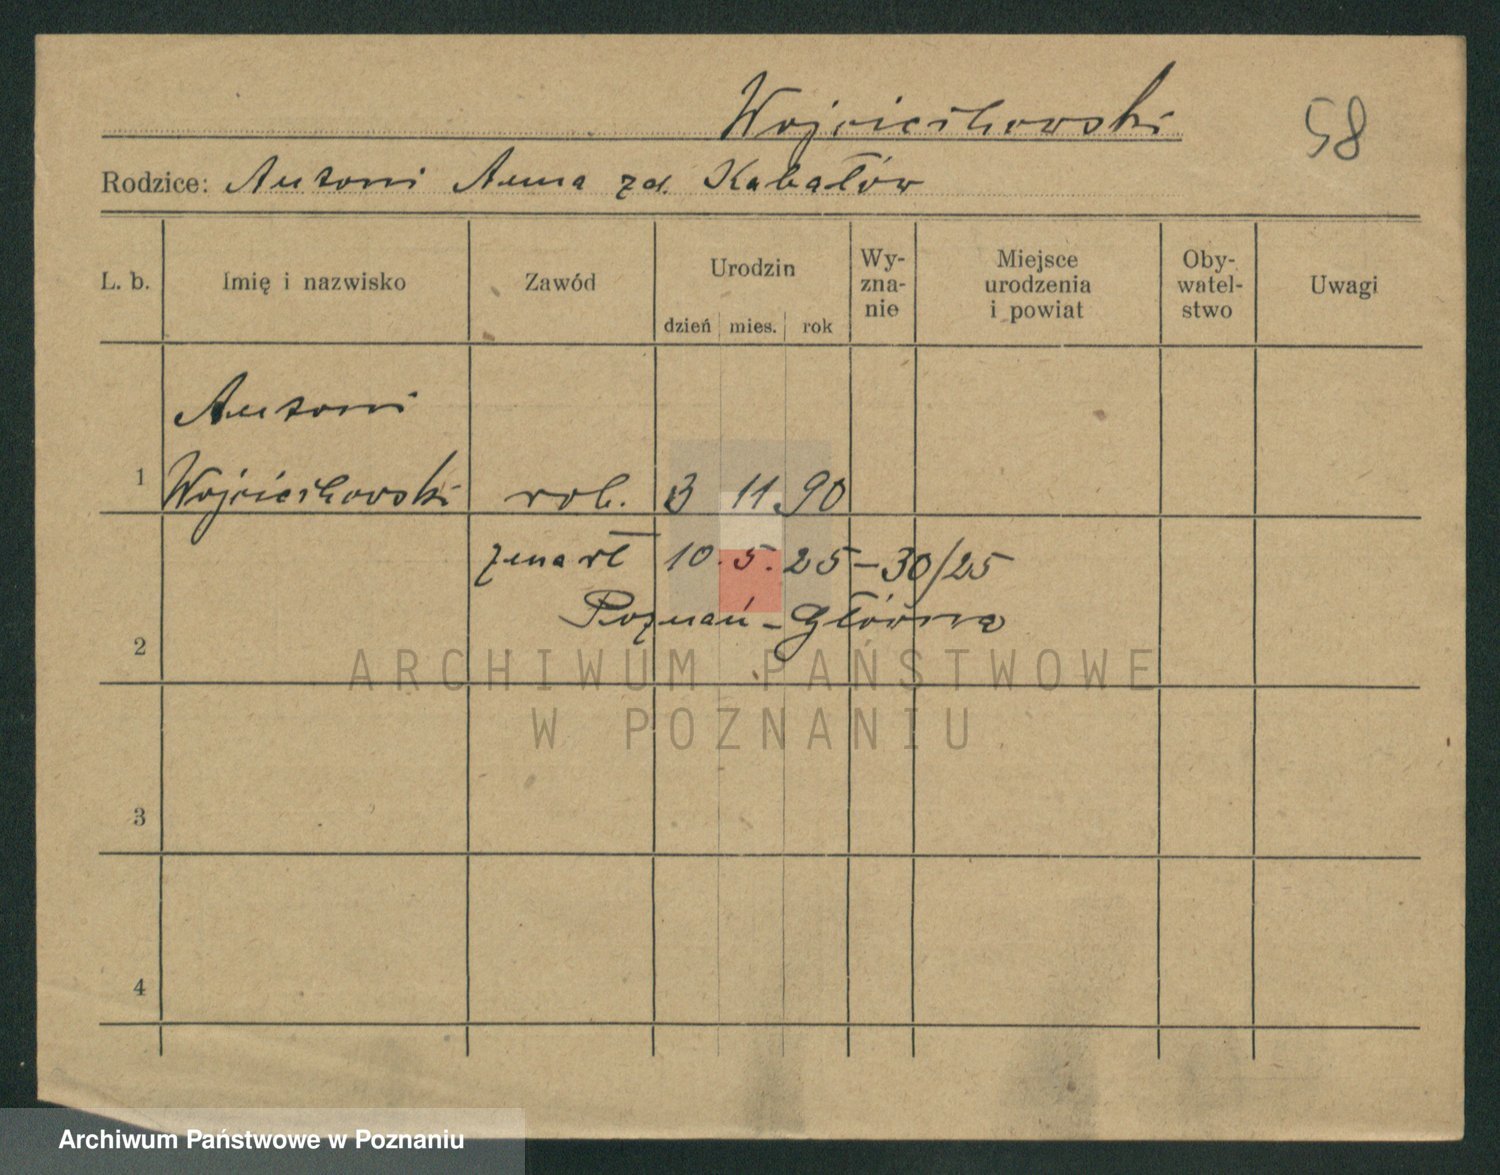 Wojciechowski
58
Rodzice: Antoni Anna zd. Kabałów
L. b. Imię i nazwisko Zawód Urodzin dzień mies. rok Wy-zna-nie Miejsce urodzenia i powiat Oby-watel-stwo Uwagi
Antoni
1 Wojciechowski rob. 3 11 90
zmarł 10. 5. 25 – 30/25
Poznań – Główna
2
ARCHIWUM PAŃSTWOWE
W POZNANIU
3
4
Archiwum Państwowe w Poznaniu